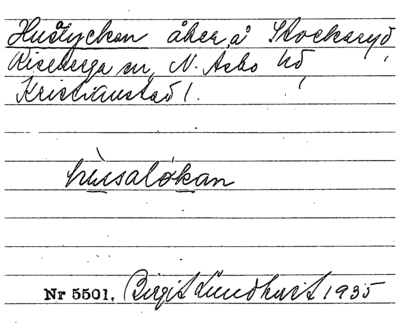 Huslyckan åker å Stocksryd,
Riseberga sn, N. Åsbo hd,
Kristianstad l.
hùsalókan
Nr 5501. Birgit Lundkvist 1935